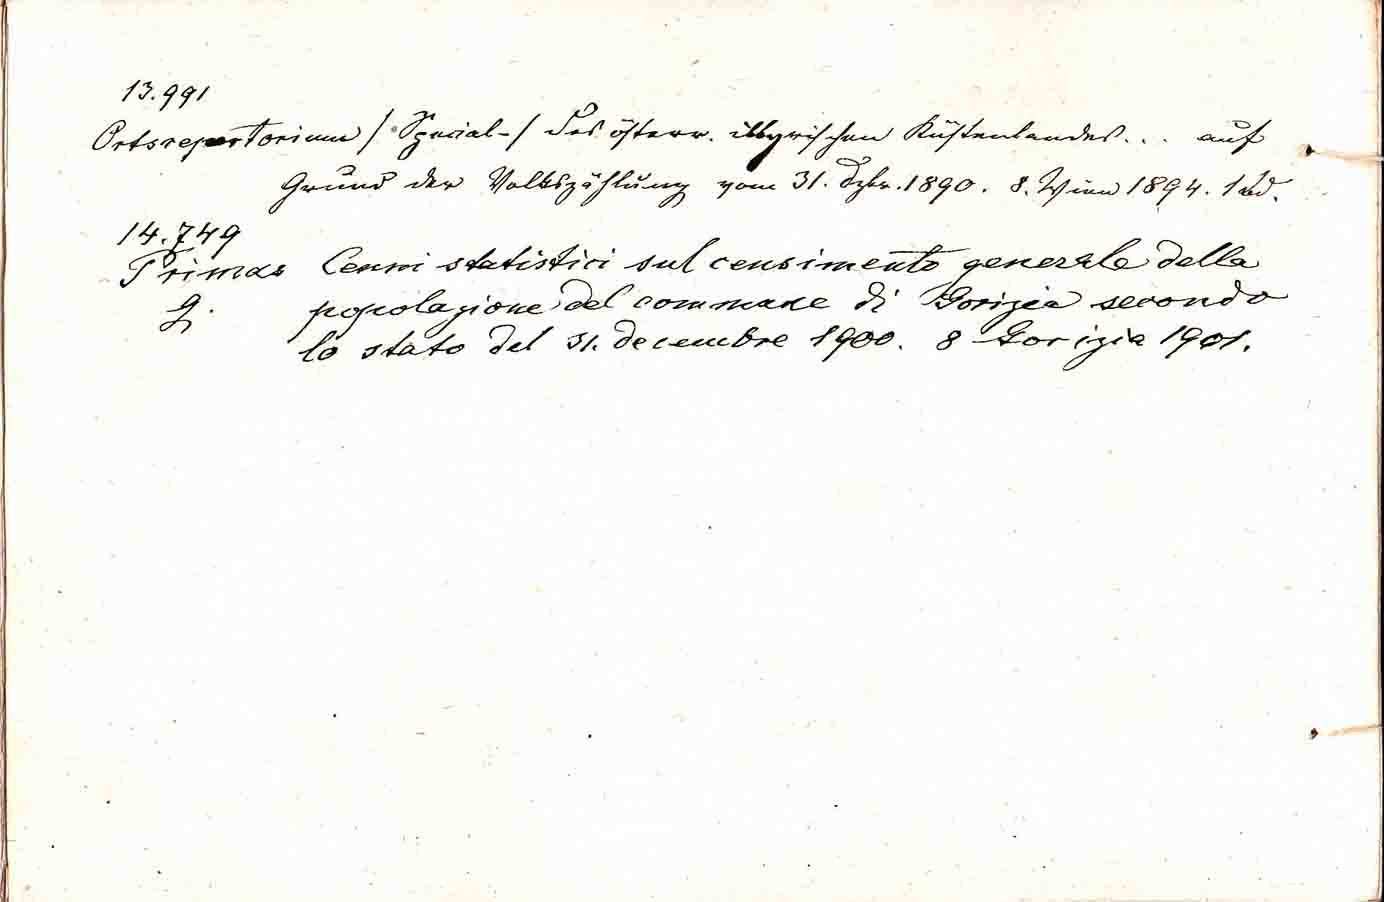 13.991
Ortsrepertorium / Special-/ des österr. illyrischen Küstenlandes... auf
Grund der Volkszählung vom 31. Dzbr. 1890. 8. Wien 1894. 1 Bd.
14.749
Primas Cenni statistici sul censimento generale della
G. popolazione del commune di Gorizia secondo
lo stato del 31. decembre 1900. 8 Gorizia 1901.